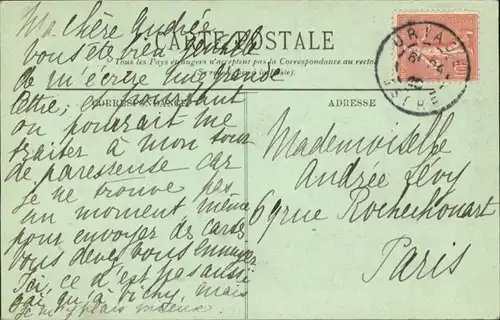 Ma chère Andrée
CARTE POSTALE
Tous les Pays étrangers n'acceptent pas la Correspondance au recto
vous êtes bien gentille
de m'écrire une grande
lettre, et pourtant
CORRESPONDANCE
on pourrait me
traiter à mon tour
de paresseuse car
je ne trouve pas
un moment même
pour envoyer des cartes
vous devez vous ennuyer
Ici, ce n'est pas aussi
gai qu'à Vichy, mais
je m'y plais mieux.
ADRESSE
Mademoiselle
Andrée Lévy
69 rue Rochechouart
Paris
URIAGE
ISÈRE